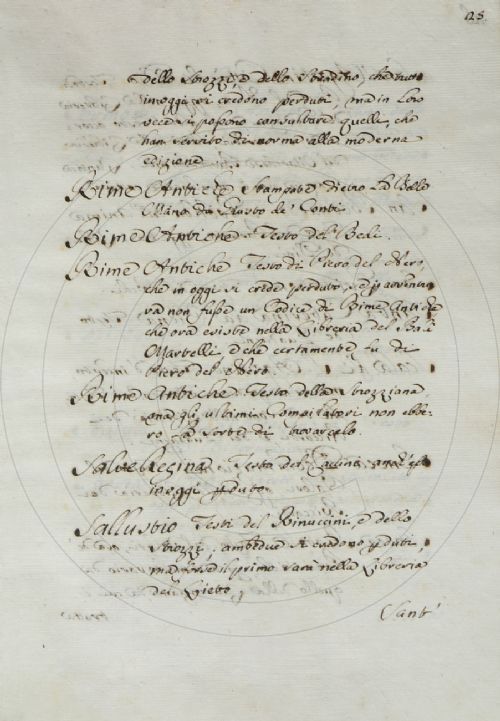 dello Strozzi, e dello Stradino, che tutti
in oggi si credono perduti, ma in loro
vece si possono consultare quelle, che
han servito di norma alla moderna
edizione
Rime Antiche Stampate dietro La Bella
Mano di Giusto de' Conti
Rime Antiche. Testo del Redi.
Rime Antiche Testo di Piero del Nero,
che in oggi si crede perduto, e p avventu
ra non fusse un Codice di Rime Antiche
che ora esiste nella Libreria del Balì
Martelli e che certamente fu di
Piero del Nero.
Rime Antiche Testo della Strozziana
ma gli ultimi Compilatori non ebbe-
ro la sorte di trovarcelo.
Salve Regina. Testo del
in oggi pduto
Sallustio Testi del Rinuccini, e dello
Strozzi, ambedue si credono pduti
ma forse il primo sarà nella Libreria
Sant'